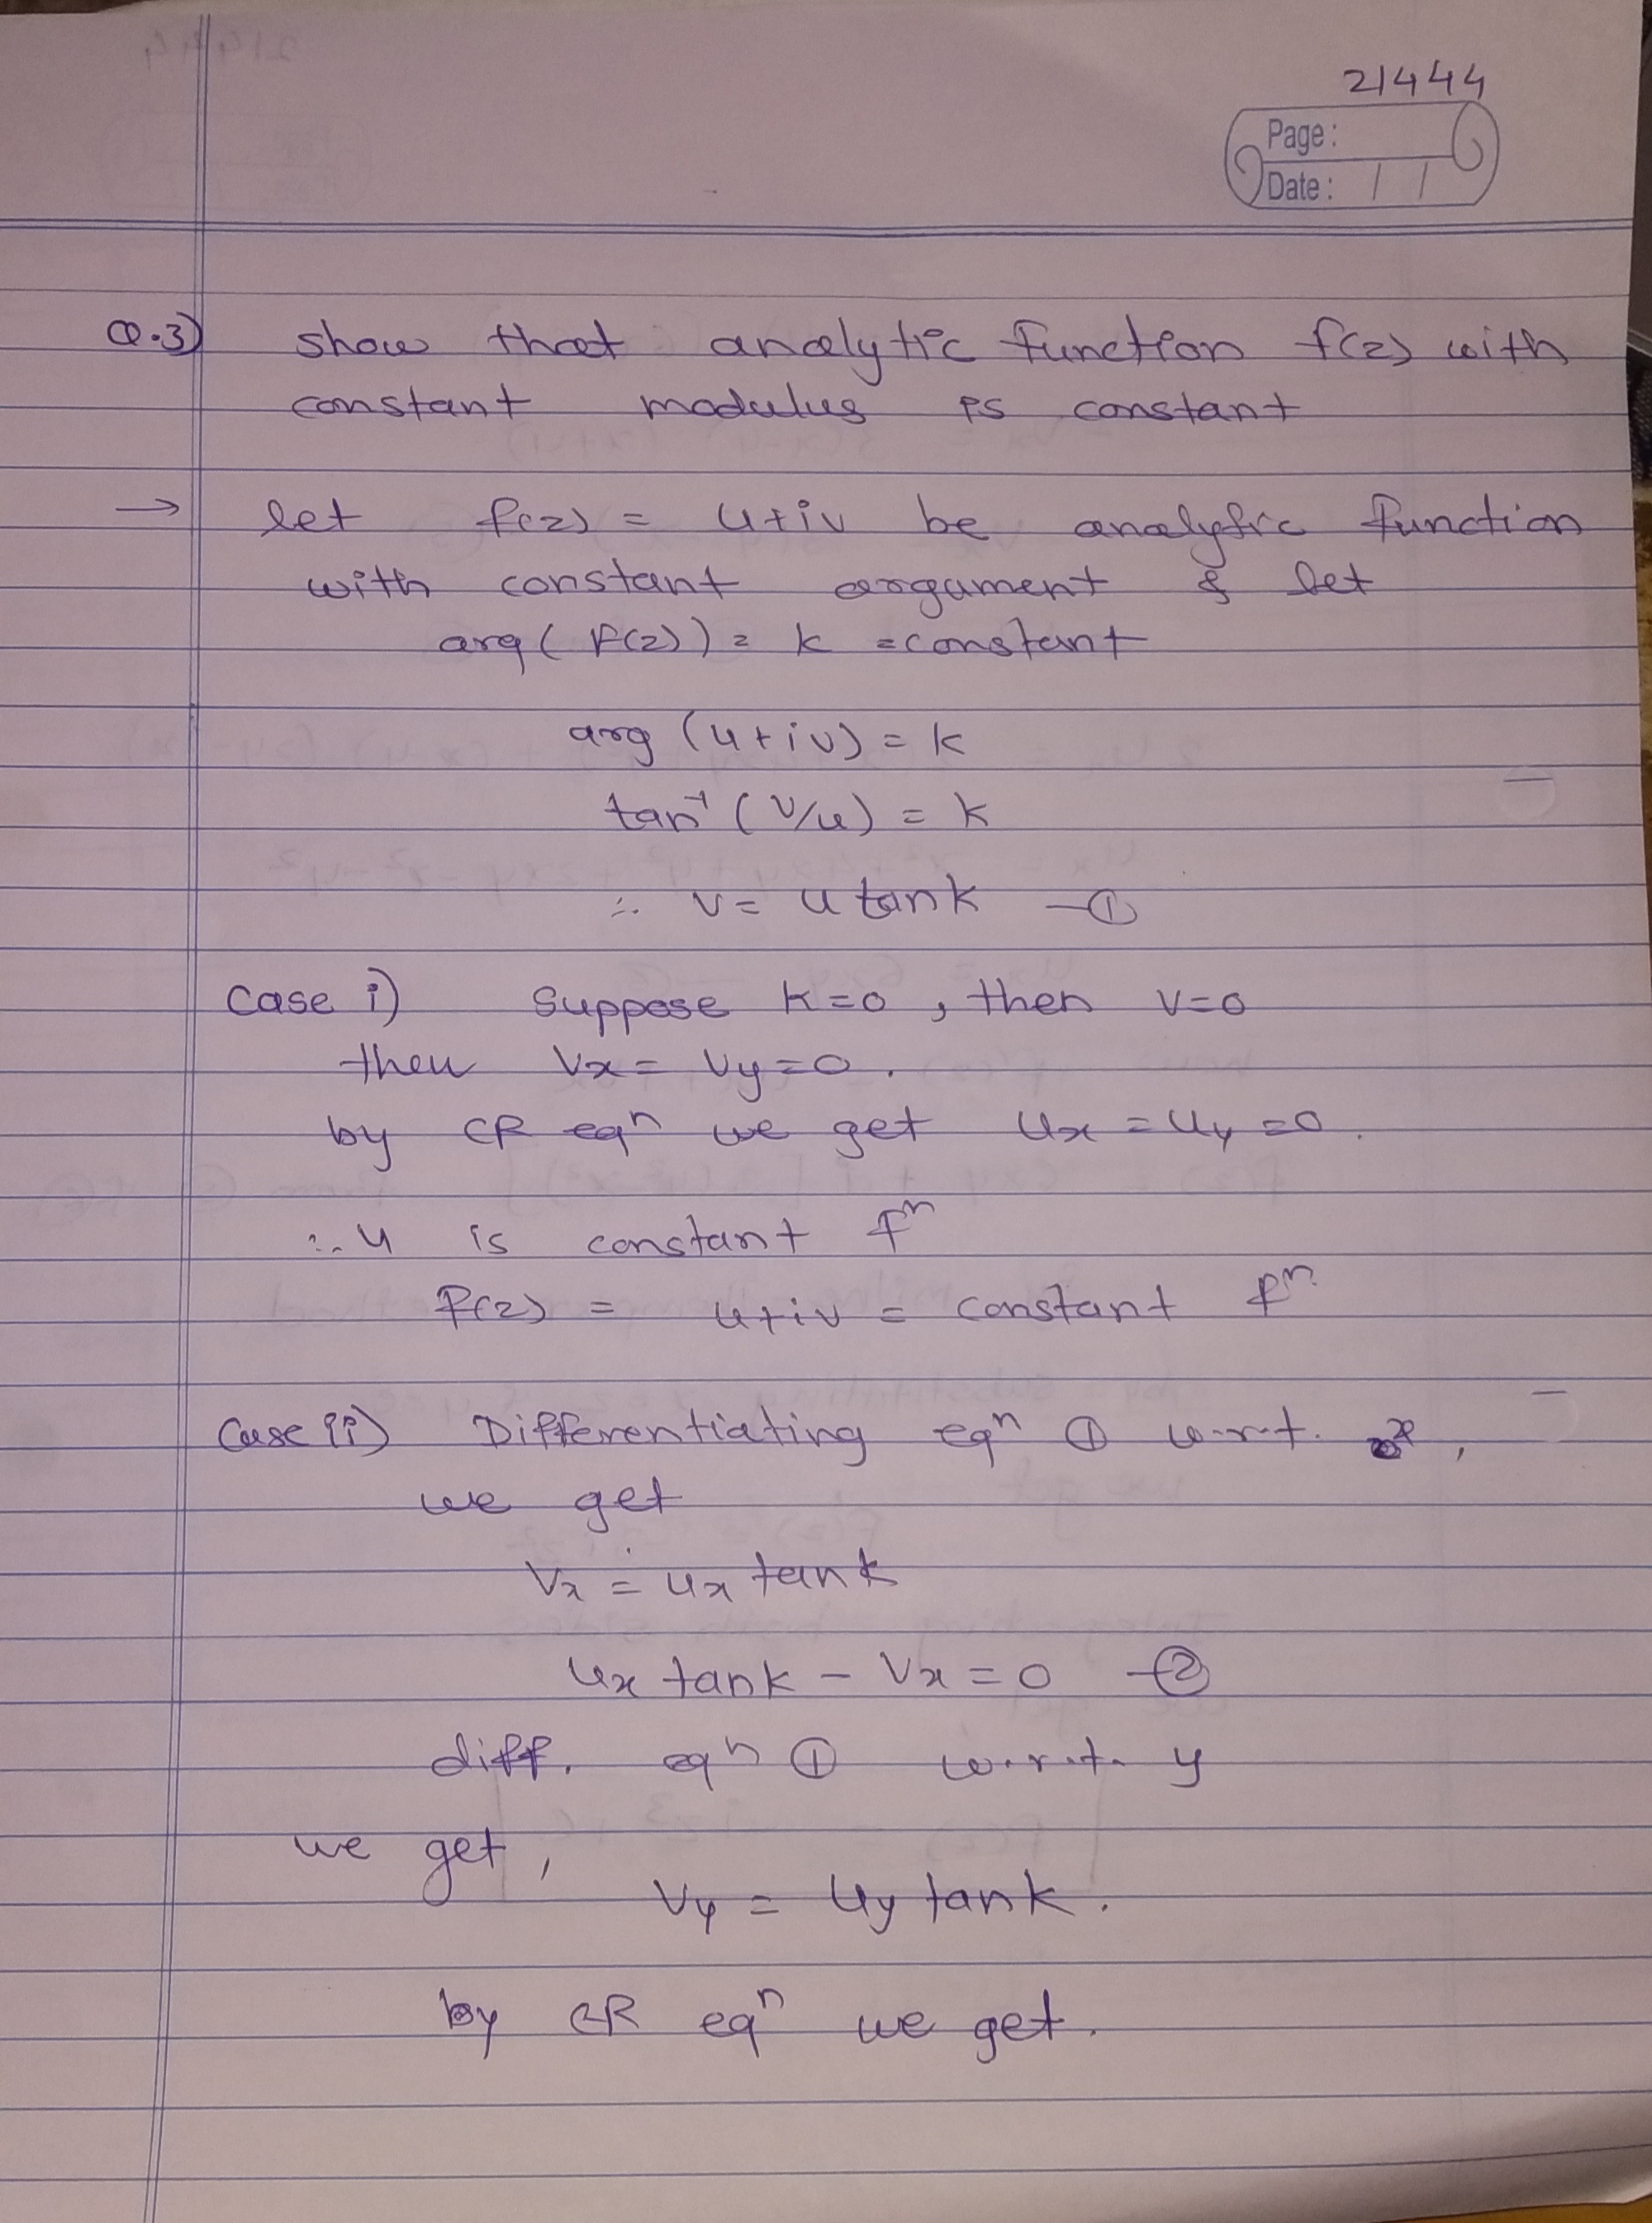 21444
Page:
Date: / /
Q.3) show that analytic function f(z) with
constant modulus is constant
→ let f(z) = u+iv be analytic function
with constant argument & let
arg ( f(z)) = k = constant
arg (u+iv) = k
tan⁻¹ (v/u) = k
∴ v = u tank —①
Case i) Suppose k=0, then v=0
then Vx = Vy = 0.
by CR eqⁿ we get Ux = Uy = 0.
∴ u is constant fⁿ
f(z) = u+iv = constant fⁿ.
Case ii) Differentiating eqⁿ ① w.r.t. x,
we get
Vx = Ux tank
Ux tank - Vx = 0 —②
diff. eqⁿ ① w.r.t. y
we get,
Vy = Uy tank.
by CR eqⁿ we get.